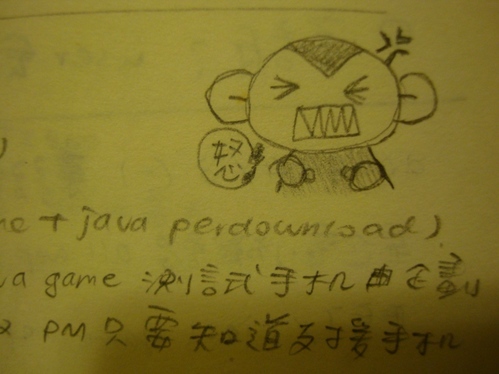 怒
)
me + java perdownload)
va game 測試式手机由企劃
PM只要知道支援手机